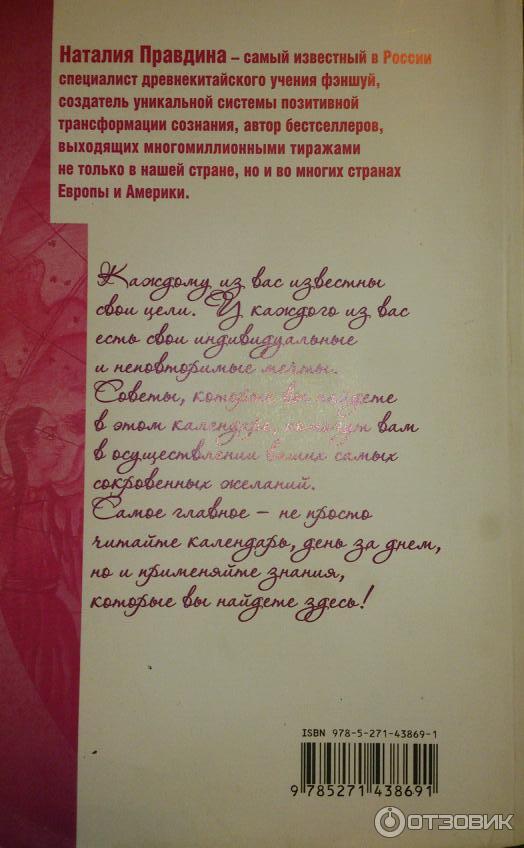 Наталия Правдина – самый известный в России
специалист древнекитайского учения фэншуй,
создатель уникальной системы позитивной
трансформации сознания, автор бестселлеров,
выходящих многомиллионными тиражами
не только в нашей стране, но и во многих странах
Европы и Америки.
Каждому из вас известны
свои цели. У каждого из вас
есть свои индивидуальные
и неповторимые мечты.
Советы, которые вы найдете
в этом календаре, помогут вам
в осуществлении ваших самых
сокровенных желаний.
Самое главное – не просто
читайте календарь, день за днем,
но и применяйте знания,
которые вы найдете здесь!
ISBN 978-5-271-43869-1
9 785271 438691
ОТЗОВИК